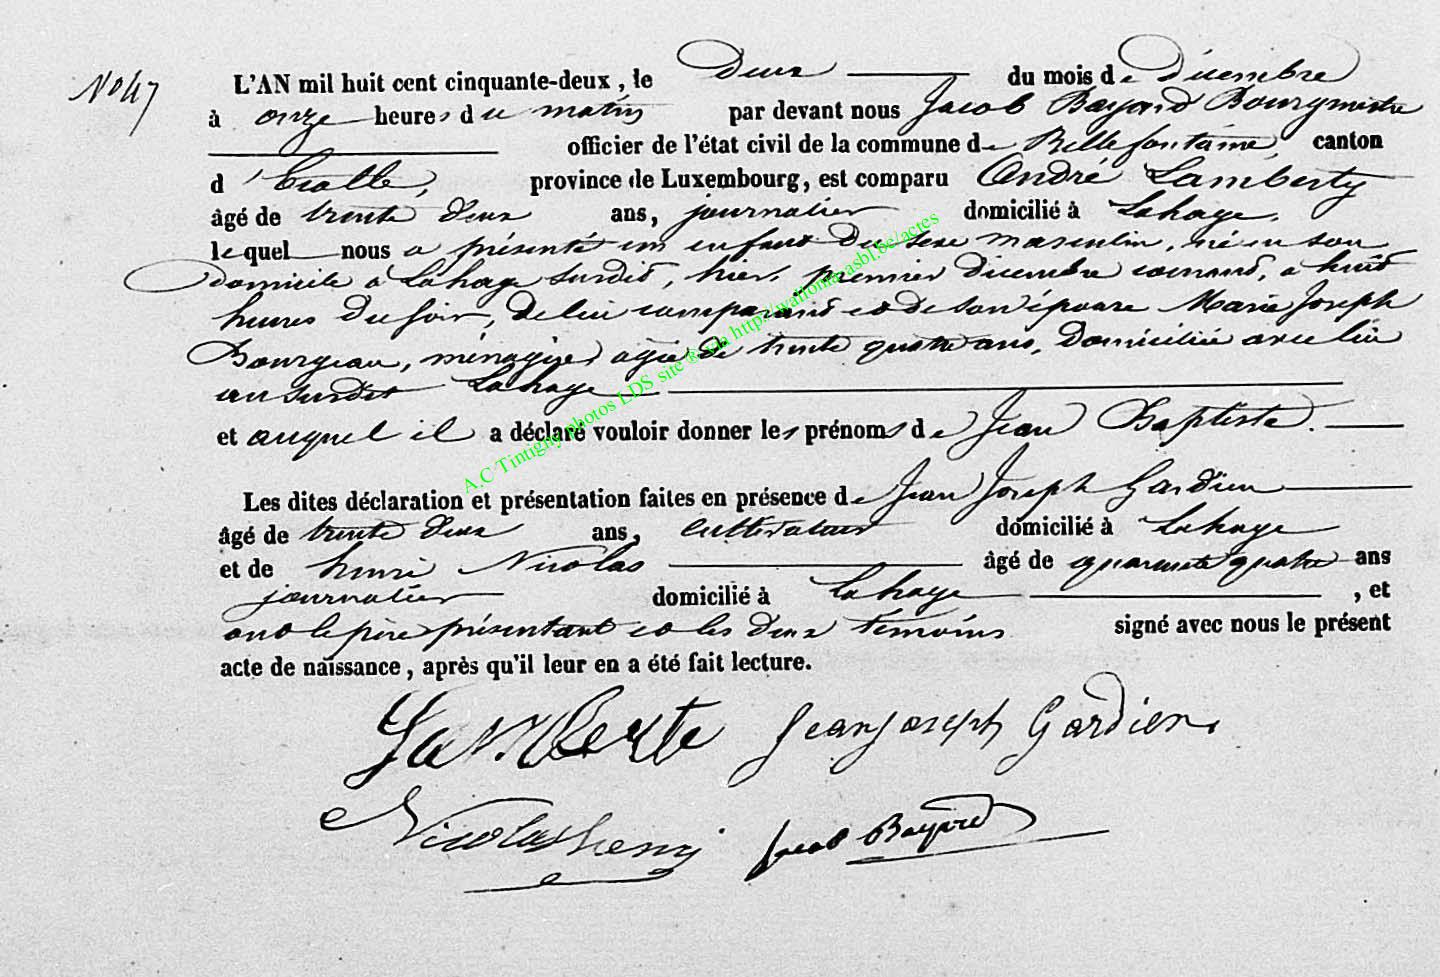 No 47
L'AN mil huit cent cinquante-deux, le Deux du mois de Décembre
à onze heures du matin par devant nous Jacob Bayard Bourgmestre
officier de l'état civil de la commune de Bellefontaine, canton
d'Etalle, province de Luxembourg, est comparu André Lamberty
âgé de trente deux ans, journalier domicilié à Lahage,
lequel nous a présenté un enfant du sexe masculin, né en son
domicile à Lahage susdit, hier, premier décembre courant, à huit
heures du soir, de lui comparant et de son épouse Marie Joseph
Bourgeau, ménagère, agée de trente quatre ans, domiciliée avec lui
au susdit Lahage
et auquel il a déclaré vouloir donner les prénoms de Jean Baptiste.
Les dites déclaration et présentation faites en présence de Jean Joseph Gardien
âgé de trente deux ans, cultivateur domicilié à Lahage
et de henri Nicolas âgé de quarante quatre ans
journalier domicilié à Lahage, et
ont le père présentant et les deux témoins signé avec nous le présent
acte de naissance, après qu'il leur en a été fait lecture.
Lamberte Jean joseph Gardien
Nicolas henri Jacob Bayard
A.C Tintigny photos LDS site ® via http://wallonia-asbl.be/actes